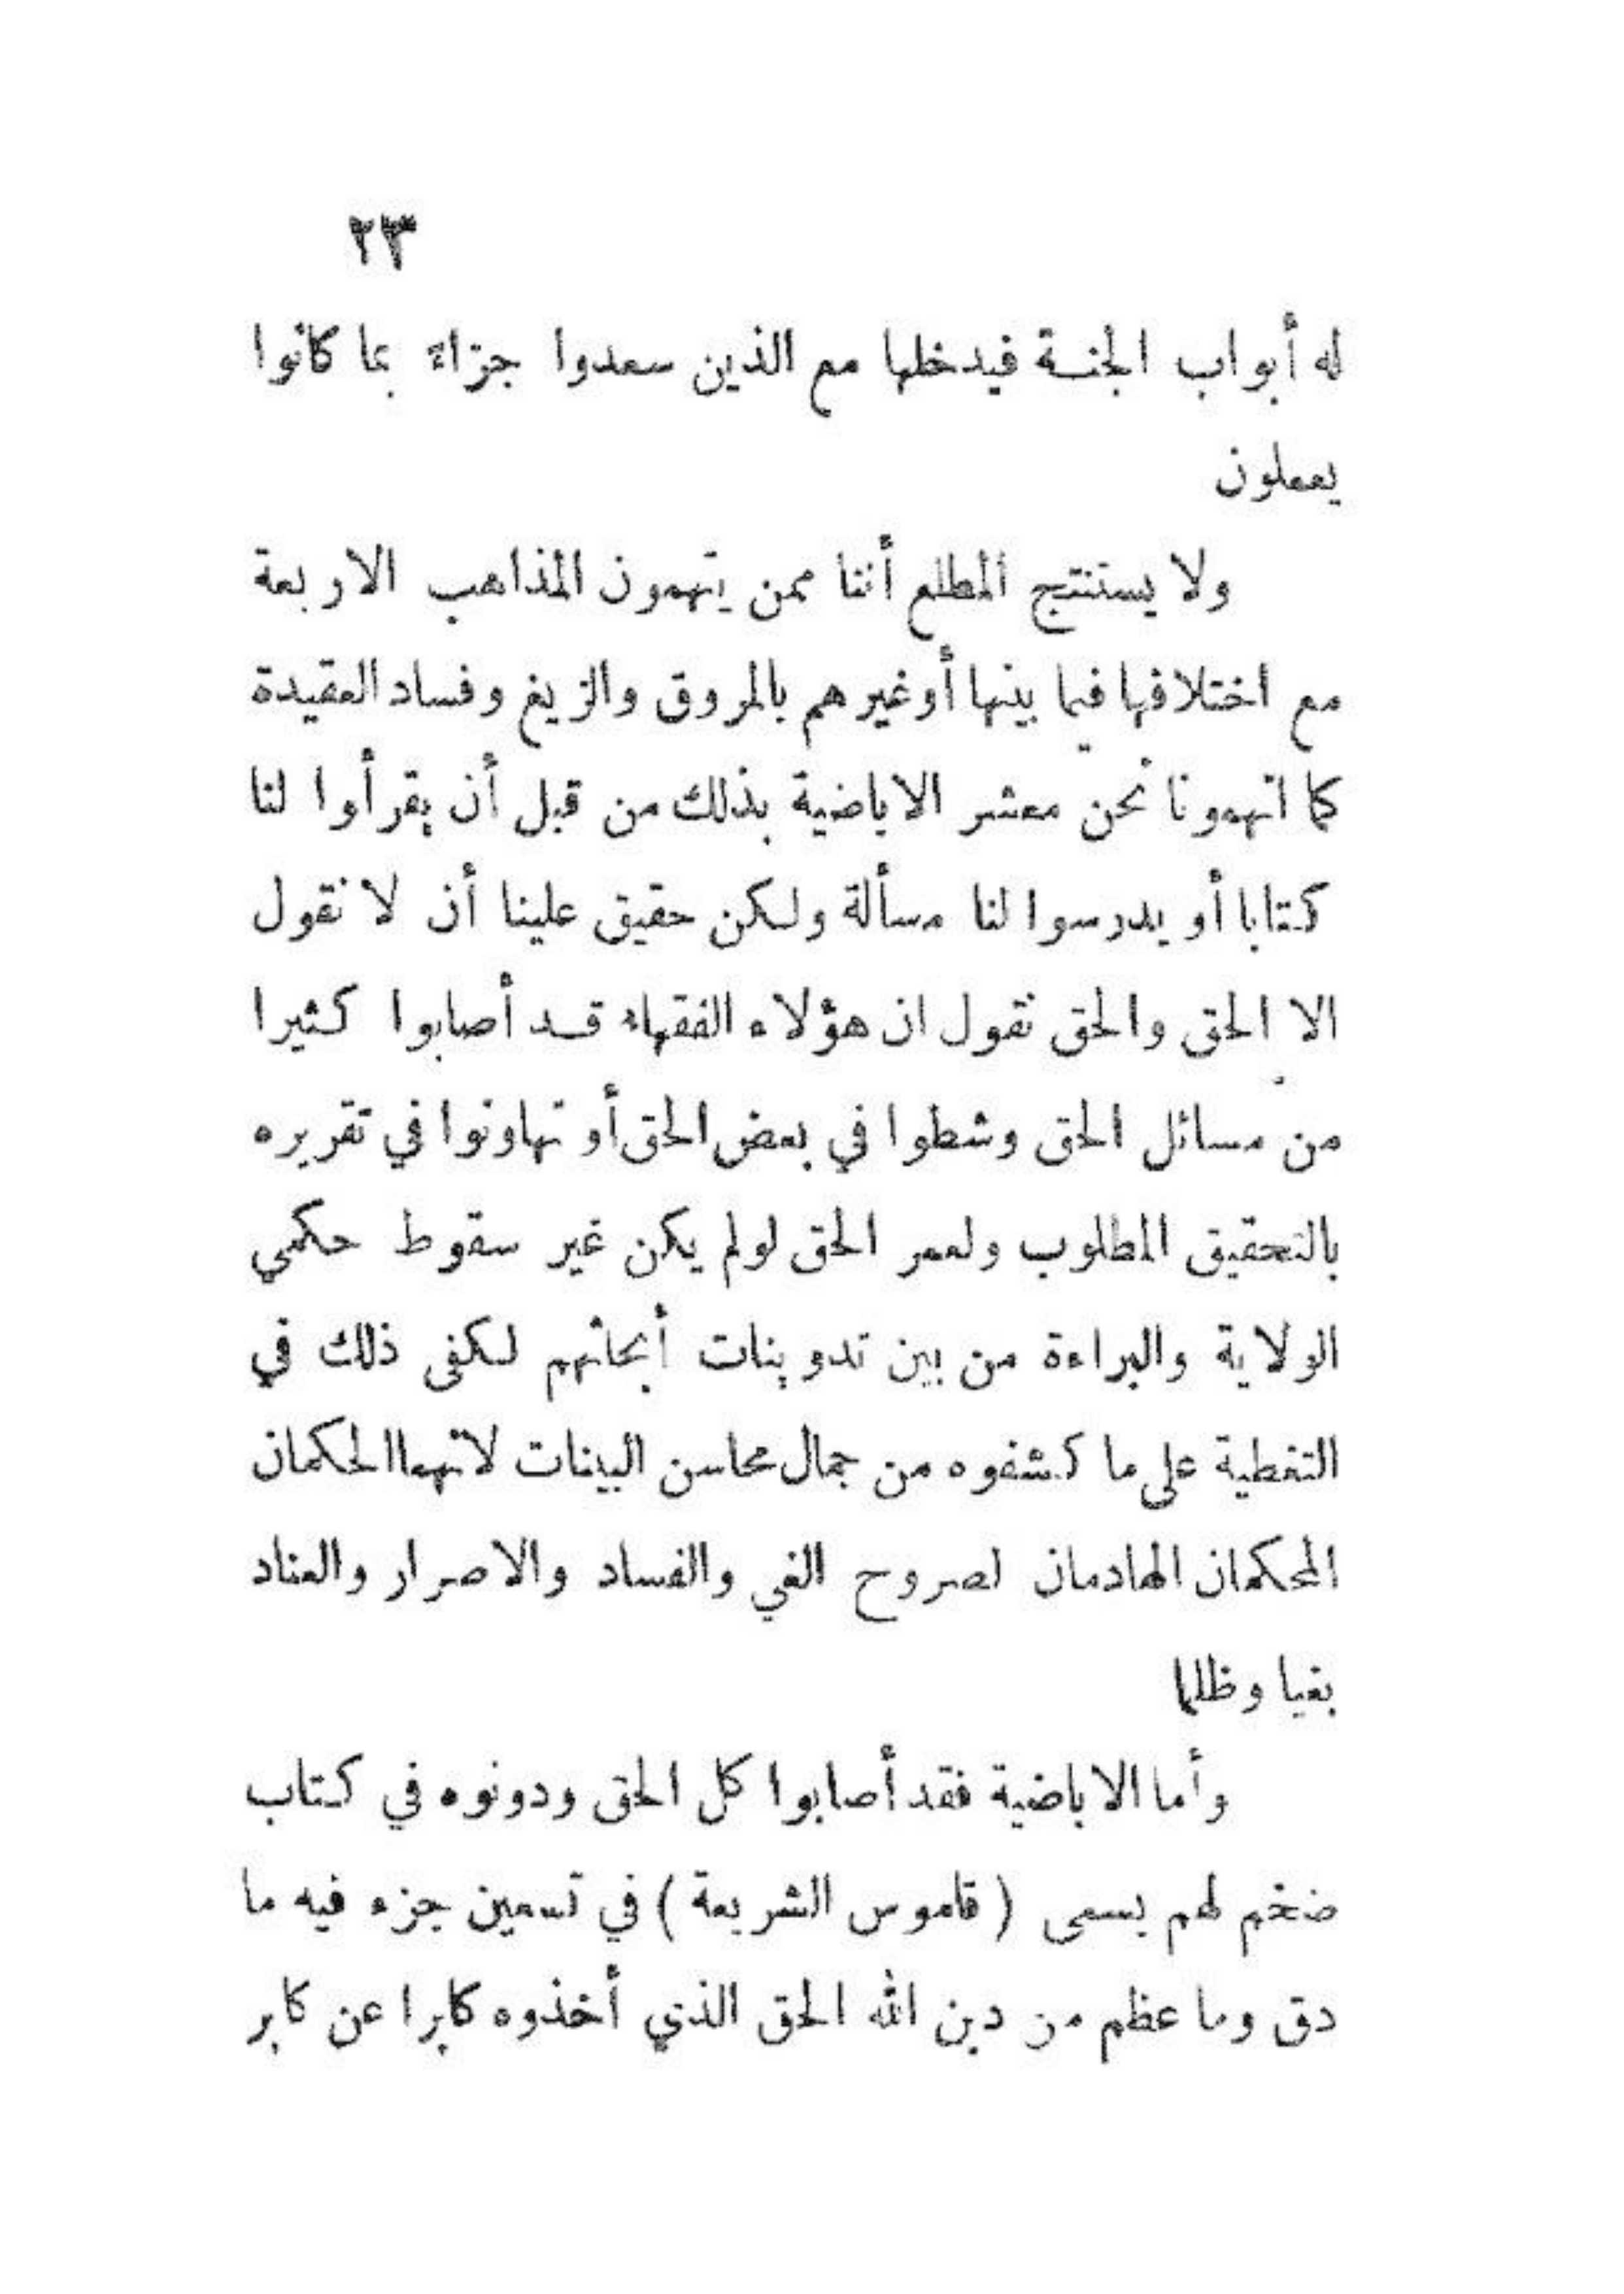 ٢٣
له أبواب الجنة فيدخلها مع الذين سعدوا جزاءً بما كانوا
يعملون
ولا يستنتج المطلع أننا ممن يتهمون المذاهب الاربعة
مع اختلافها فيما بينها أو غيرهم بالمروق والزيغ وفساد العقيدة
كما اتهمونا نحن معشر الاباضية بذلك من قبل أن يقرأوا لنا
كتابا أو يدرسوا لنا مسألة ولكن حقيق علينا أن لا نقول
الا الحق والحق نقول ان هؤلاء الفقهاء قد أصابوا كثيرا
من مسائل الحق وشطوا في بعض الحق أو تهاونوا في تقريره
بالتحقيق المطلوب ولعمر الحق لو لم يكن غير سقوط حكمي
الولاية والبراءة من بين تدوينات أبحاثهم لكفى ذلك في
التغطية على ما كشفوه من جمال محاسن البينات لانهما الحكمان
المحكمان الهادمان لصروح الغي والفساد والاصرار والعناد
بغيا وظلما
وأما الاباضية فقد أصابوا كل الحق ودونوه في كتاب
ضخم لهم يسمى ( قاموس الشريعة ) في تسعين جزء فيه ما
دق وما عظم من دين الله الحق الذي أخذوه كابرا عن كابر